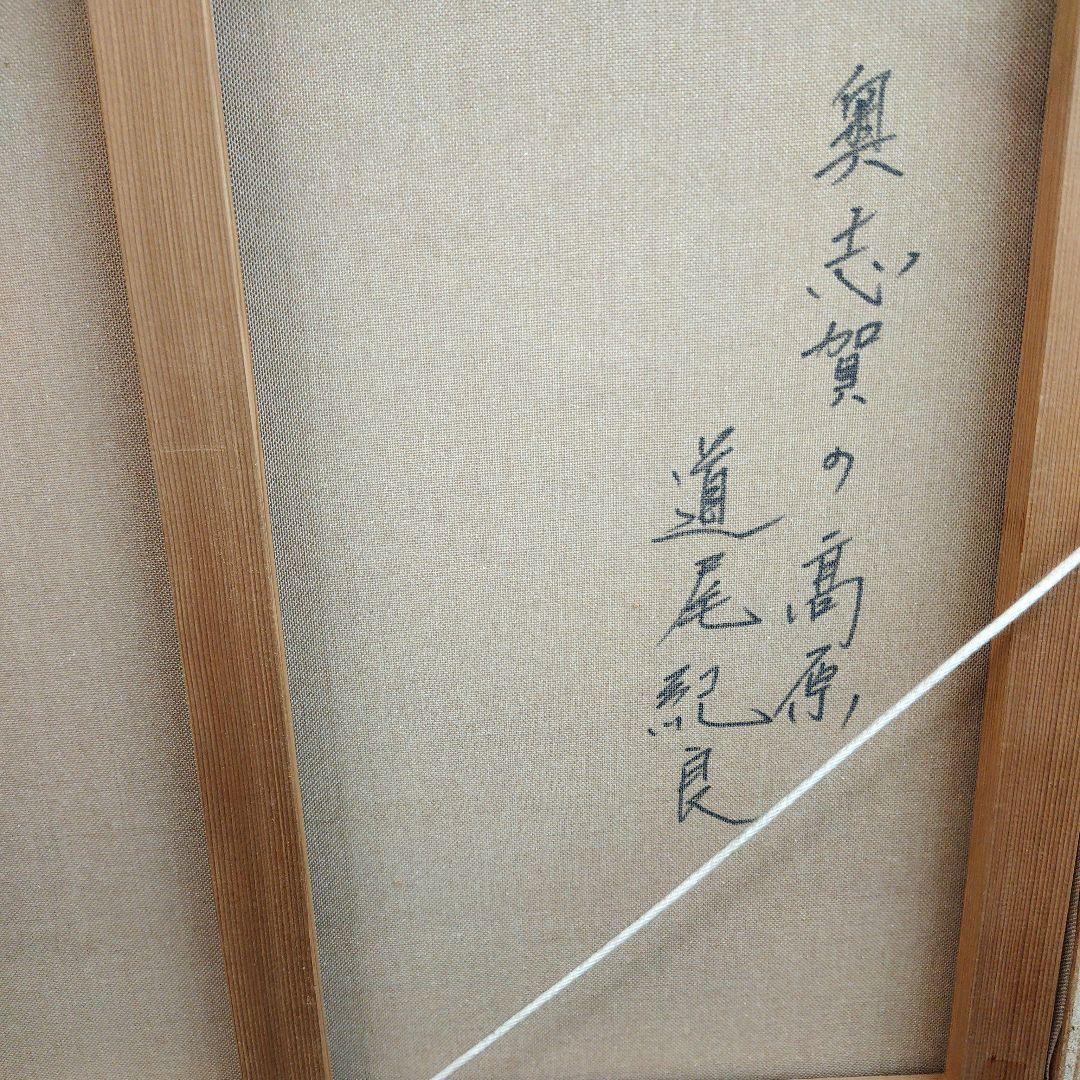 奥志賀の髙原
道尾紀良